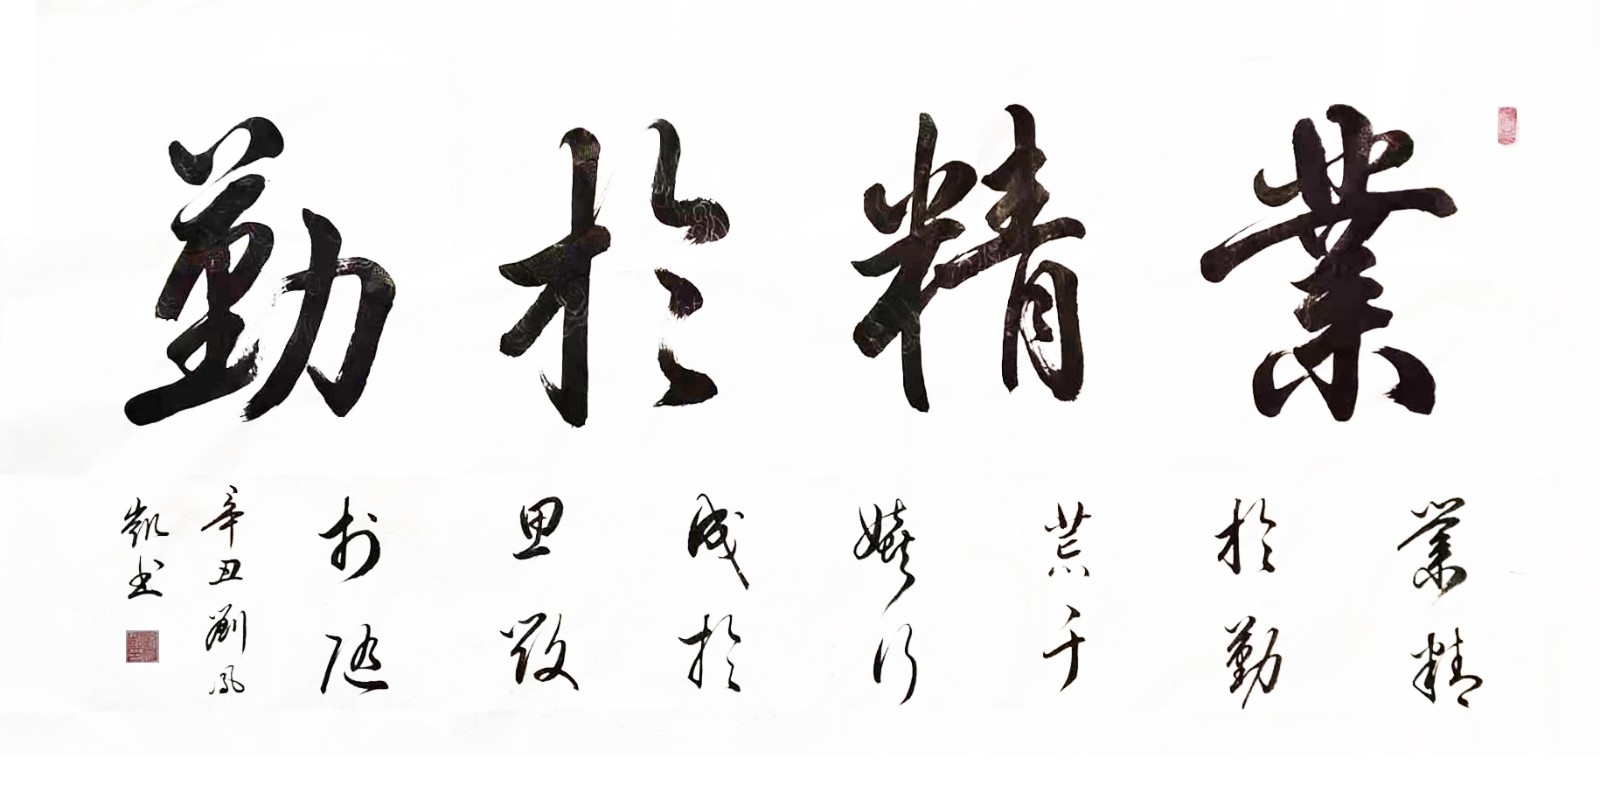 業精於勤
業精
於勤
荒于
嬉行
成於
思毀
於随
辛丑劉鳳
凱书